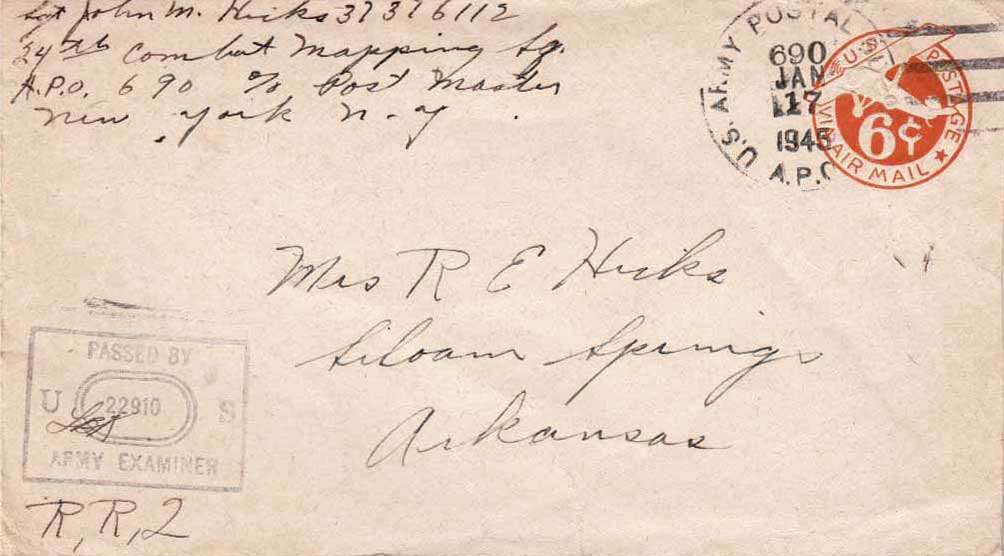 Sgt John M. Hicks 37376112
24th Combat Mapping Sq.
A.P.O. 690 % Post Master
New York N.Y
U.S. ARMY POSTAL
690
JAN
17
1945
A.P.O
U.S. POSTAGE
VIA AIR MAIL
6¢
Mrs R E Hicks
Siloam Springs
Arkansas
PASSED BY
U 22910 S
ARMY EXAMINER
R,R,2